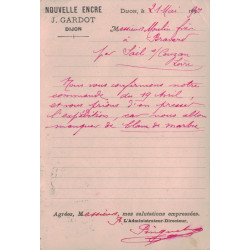 NOUVELLE ENCRE
J. GARDOT
DIJON
Dijon, le 21 Mai 18
Messieurs Moulin frères
à
par Sail s/ Couzan
Loire
Nous vous confirmons notre
commande du 19 Avril,
et vous prions d'en presser
l'expédition, car nous allons
manquer de blanc de marbre
Agréez, Messieurs, mes salutations empressées.
L'Administrateur-Directeur,